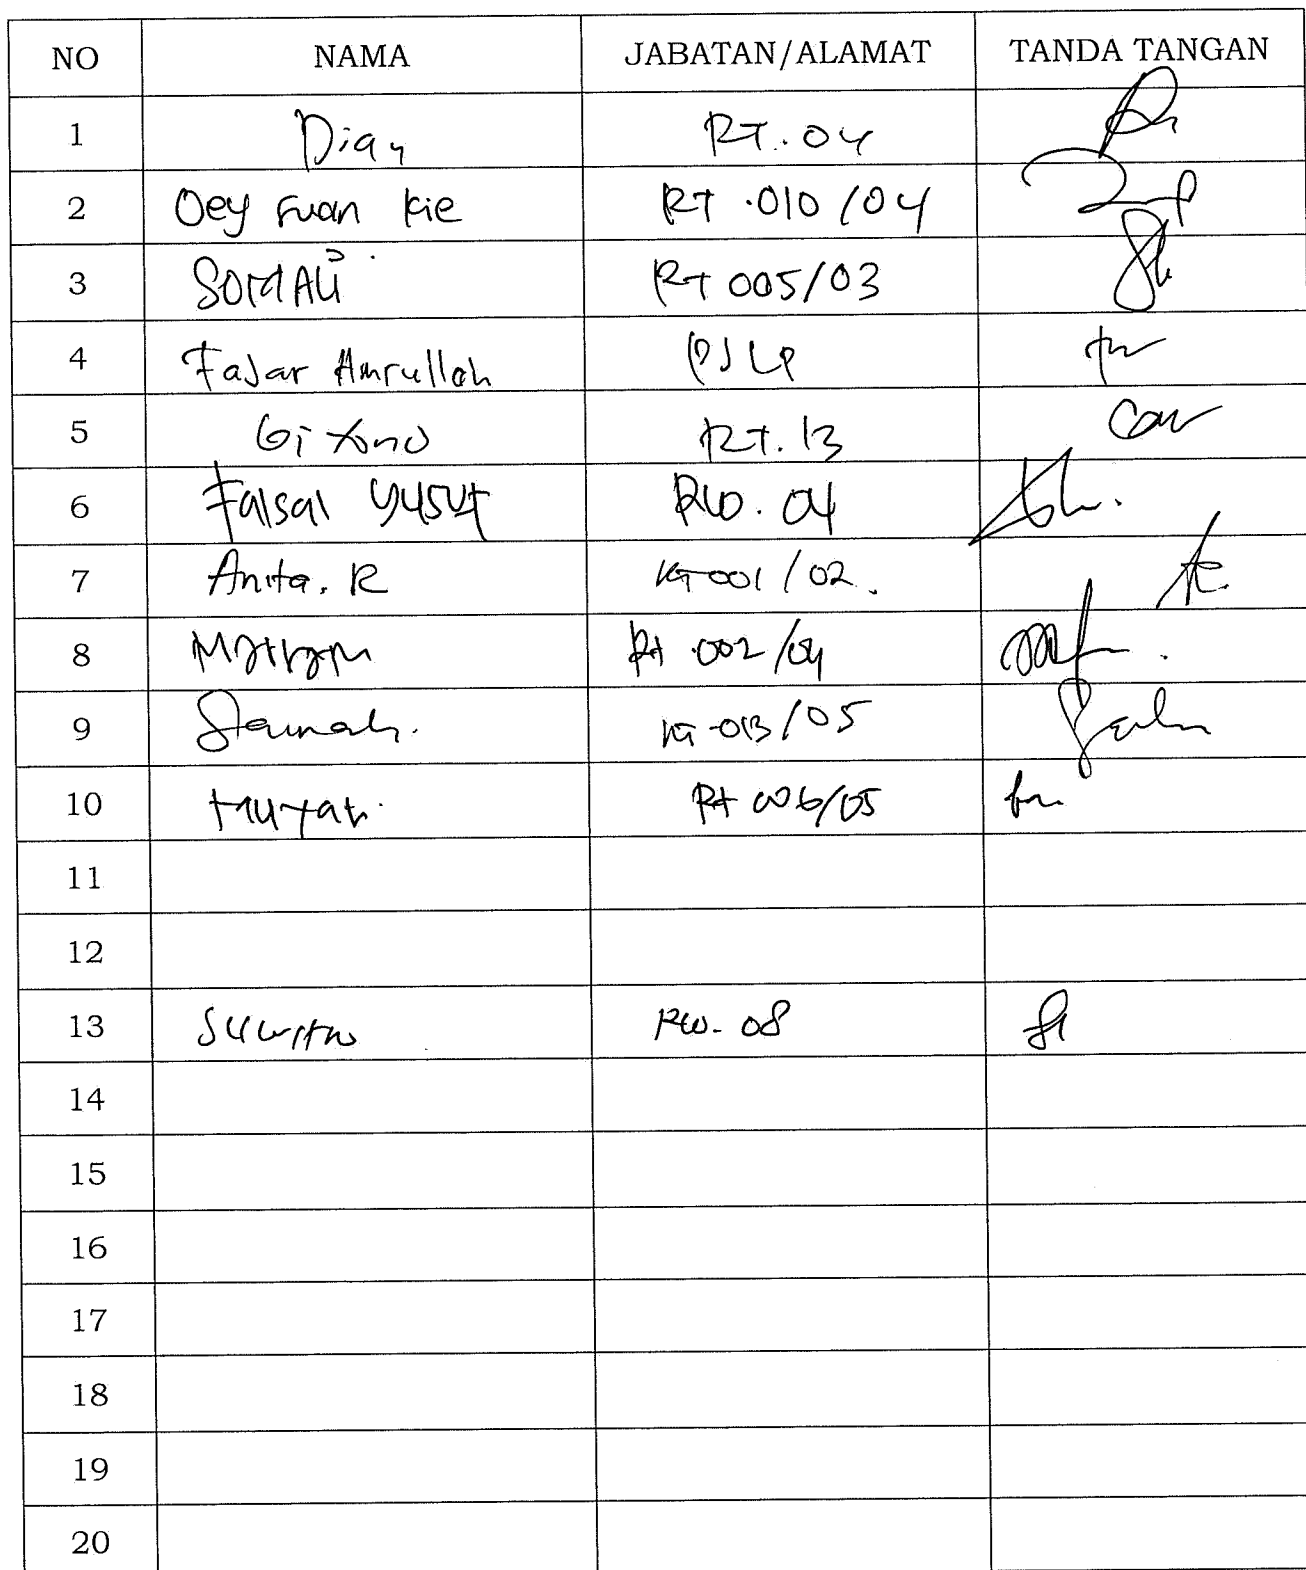 NO NAMA JABATAN/ALAMAT TANDA TANGAN
1 Dian RT. 04
2 Oey Fuan Kie RT .010 /04
3 SOMALI RT 005/03
4 Fajar Amrullah PJLP
5 Gitono RT. 13
6 Faisal Yusuf RW. 04
7 Anita. R RT 001 / 02.
8 RT 002 /04
9 RT 013/05
10 RT 006/05
11
12
13 RW. 08
14
15
16
17
18
19
20